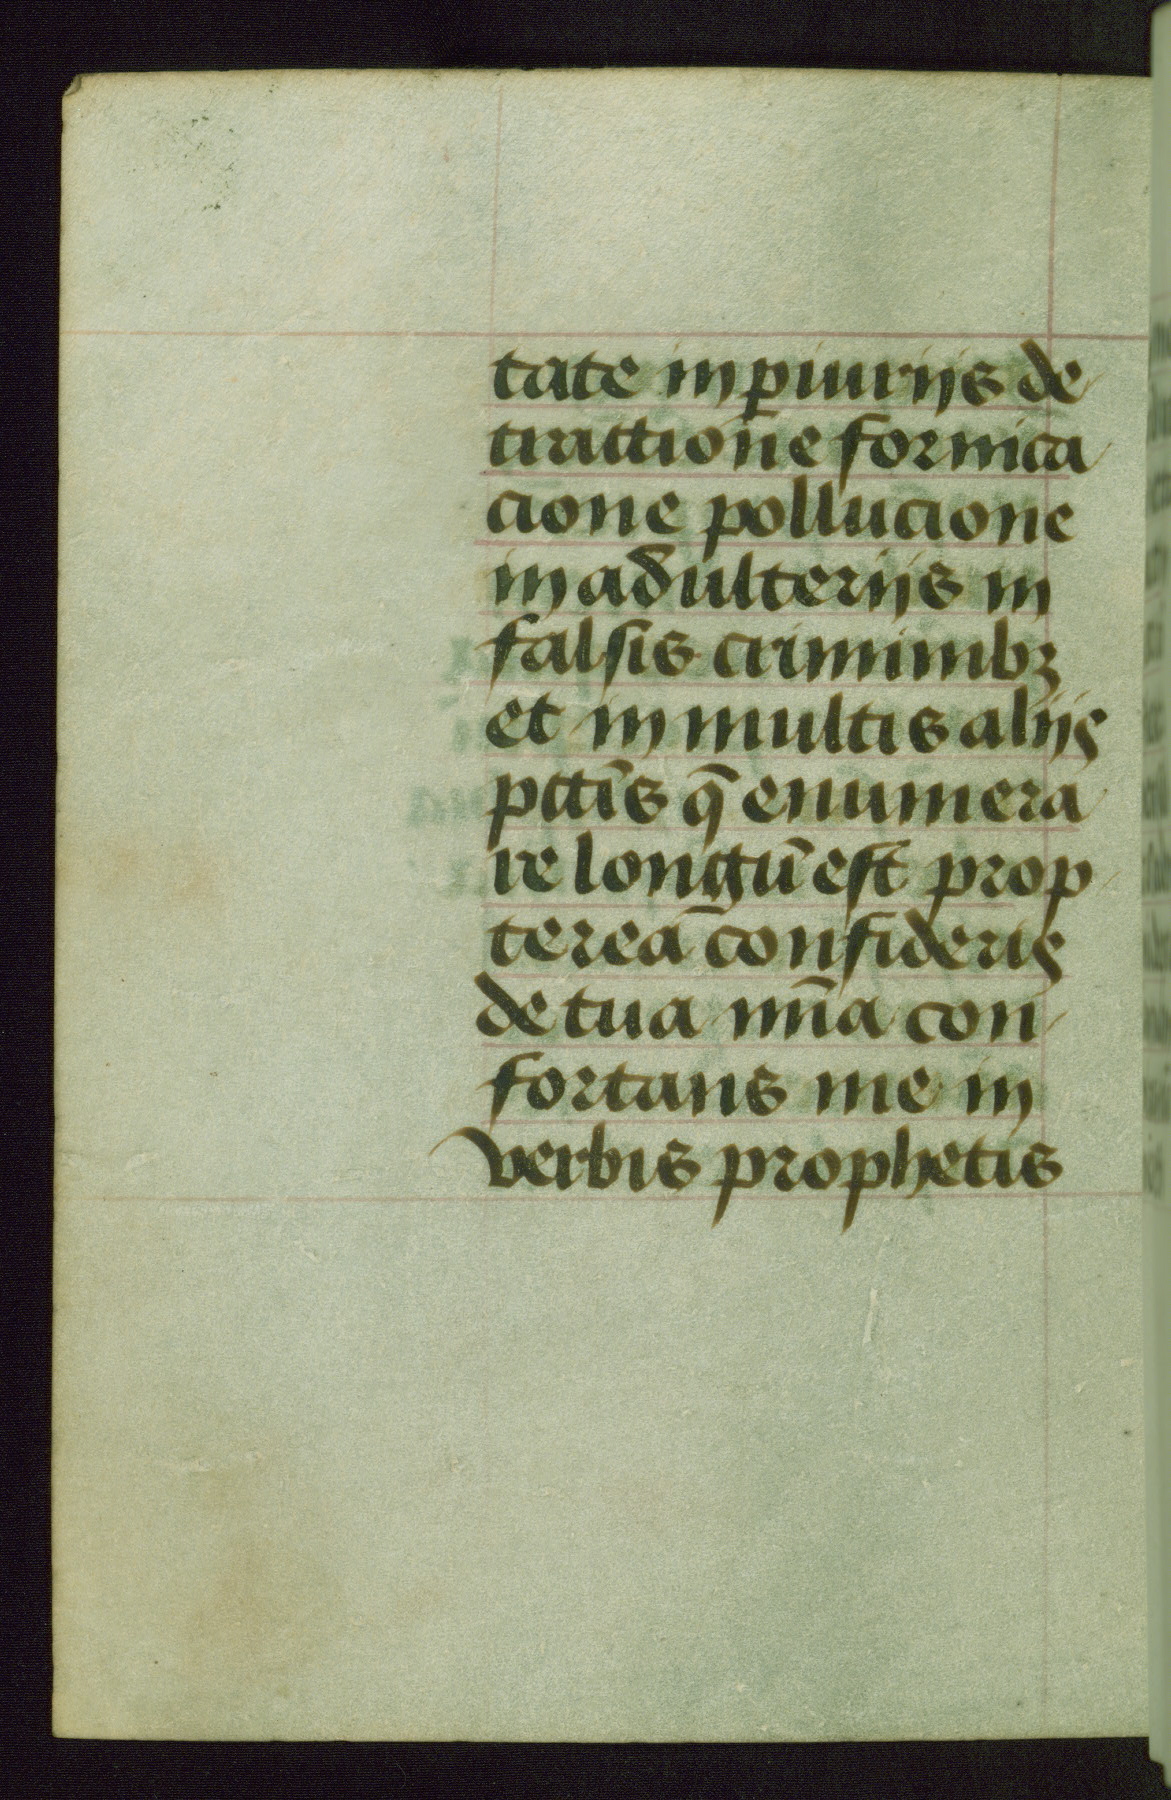 tate in ꝑiuriis de
tractione fornica
cione pollucione
in adulteriis in
falsis criminibꝫ
et in multis aliis
pctīs q̄ enumera
re longū est prop
terea confideris
de tua mīa con
fortans me in
verbis prophetis